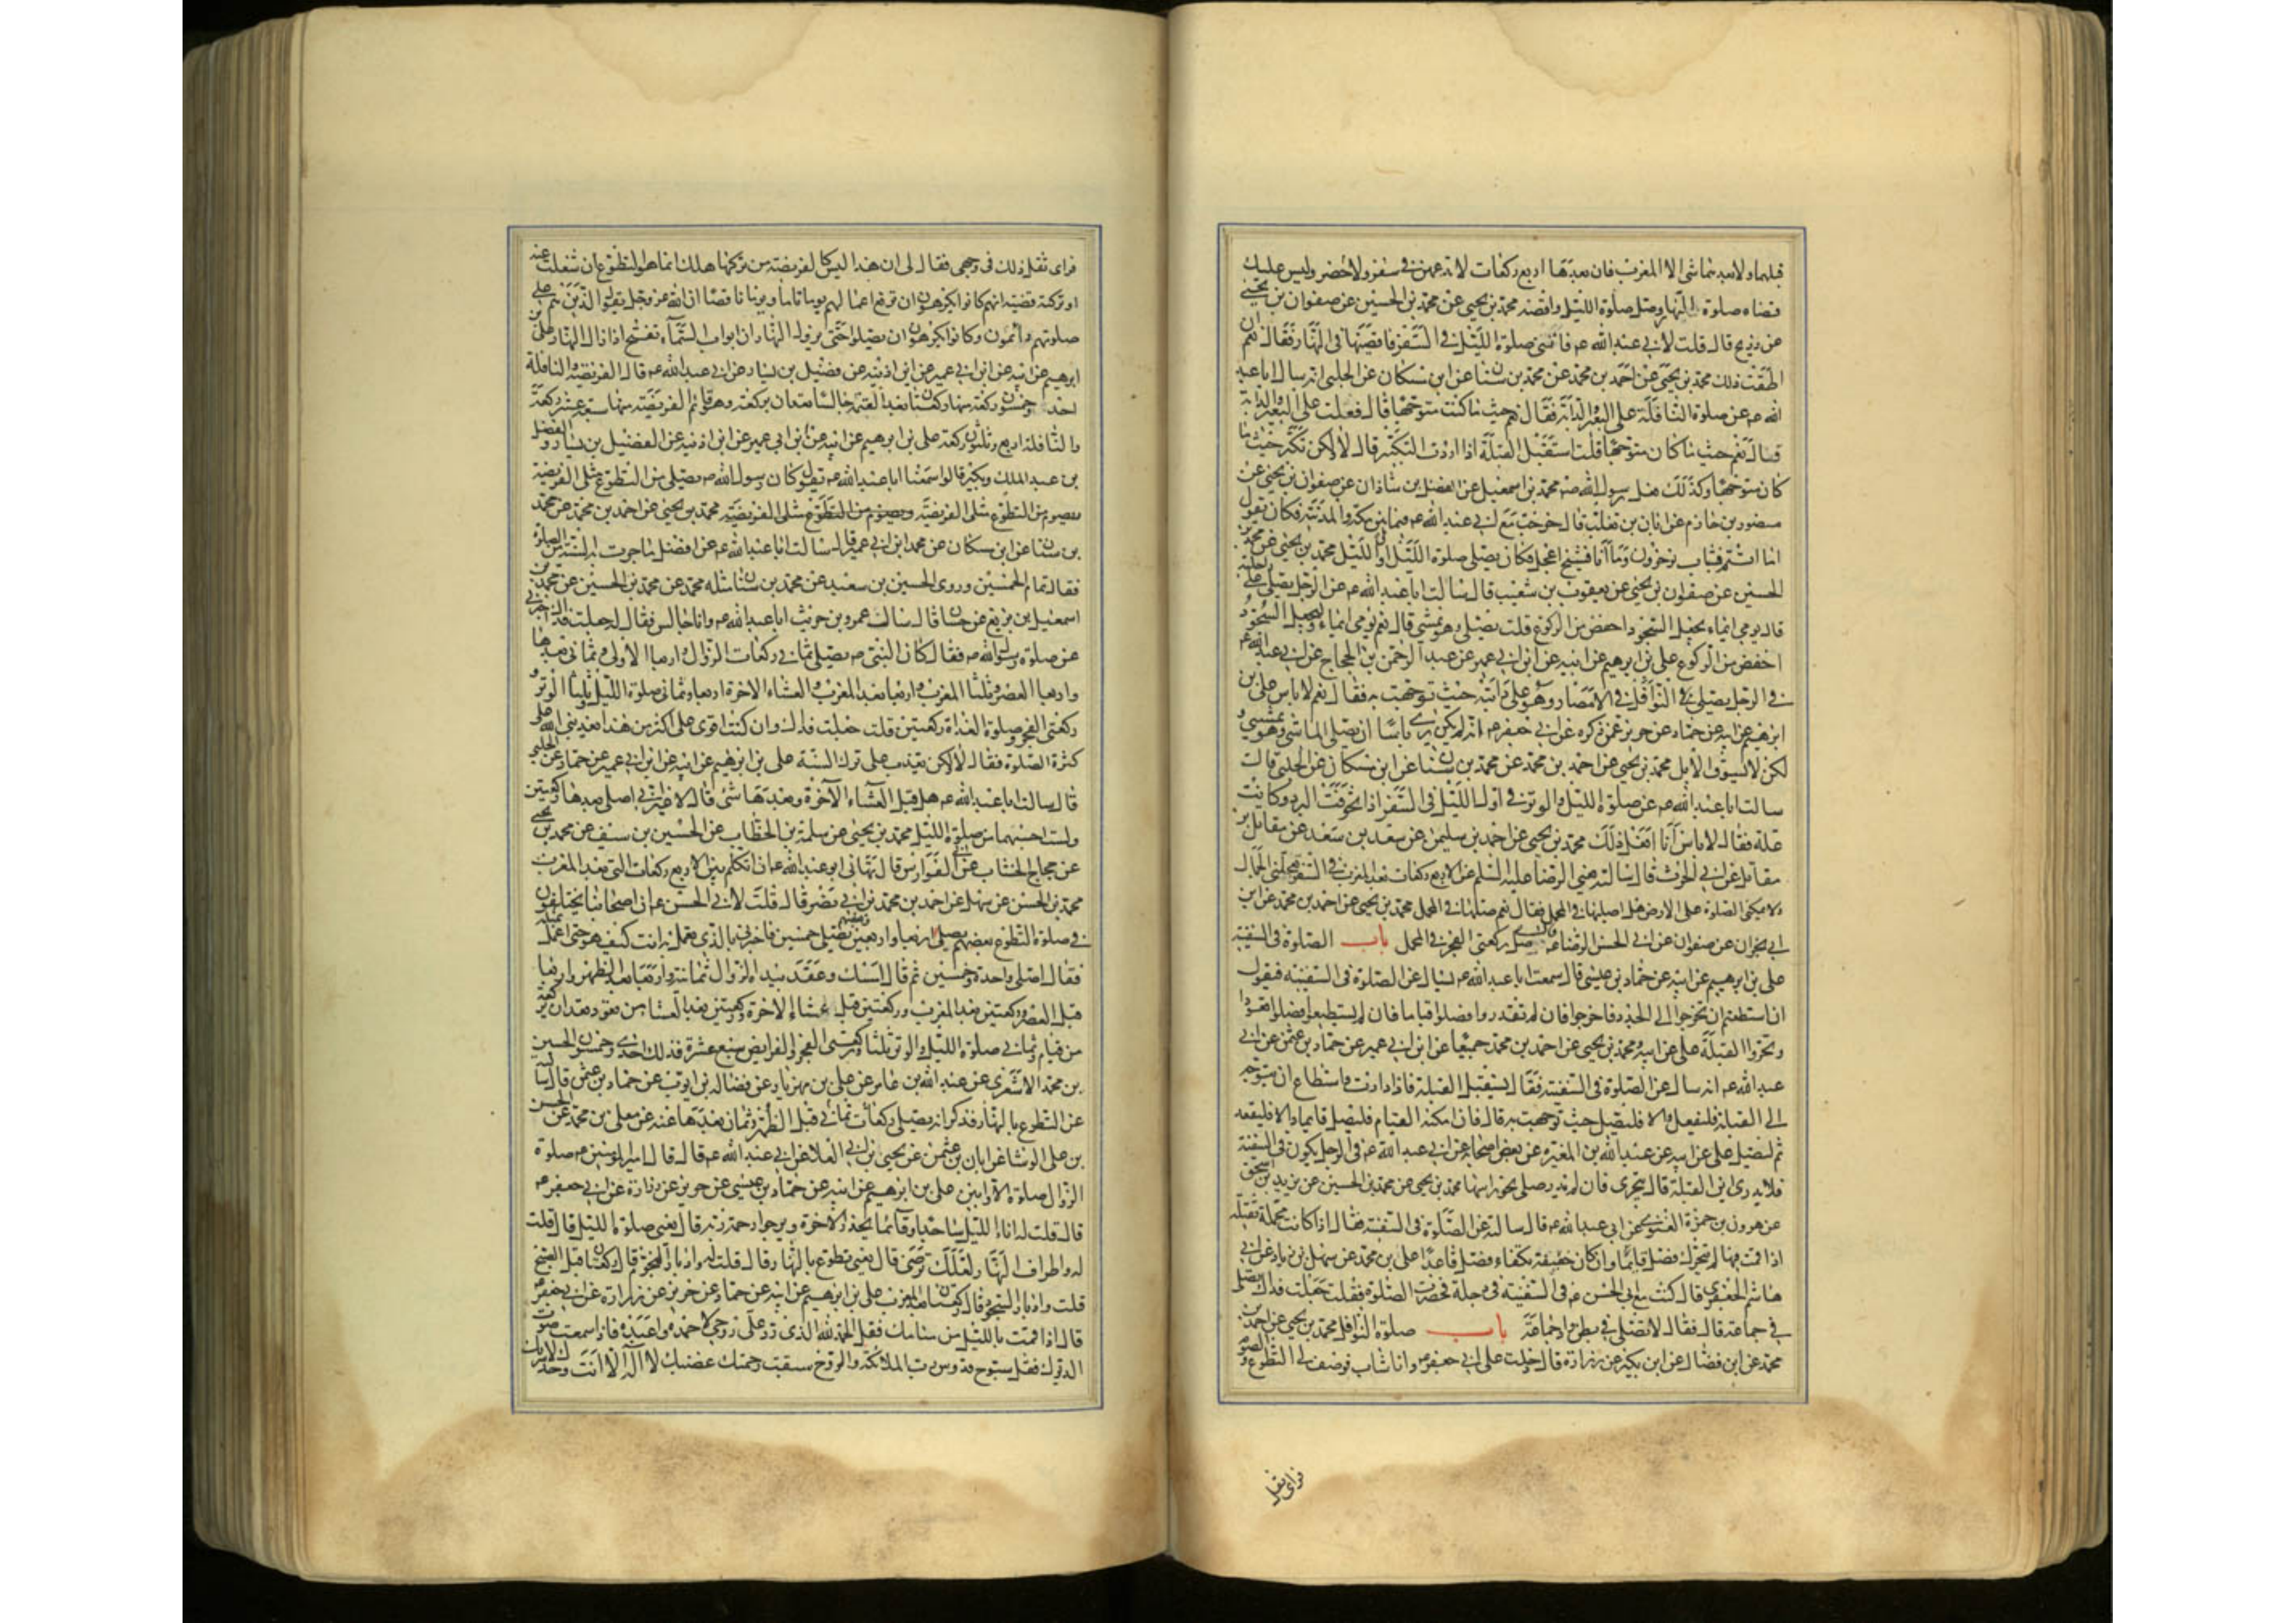 قبلهما ولا بعدهما شئ الا المغرب فان بعدها اربع ركعات لا تدعهن في سفر ولا حضر وليس عليك
قضاء صلوة النهار وصل صلوة الليل واقضه محمد بن يحيى عن محمد بن الحسين عن صفوان بن يحيى
عن ذريح قال قلت لابي عبد الله ع فاتتني صلوة الليل في السفر فاقضيها في النهار فقال نعم ان
اطقت ذلك محمد بن يحيى عن احمد بن محمد عن محمد بن سنان عن ابن مسكان عن الحلبي انه سال ابا عبد
الله ع عن صلوة النافلة على البعير والدابة فقال نعم حيث ما كنت متوجها قال فقلت على البعير والدابة
قال نعم حيث ما كان متوجها قلت استقبل القبلة اذا اردت التكبير قال لا ولكن تكبر حيث ما
كان متوجها وكذلك فعل رسول الله ص محمد بن اسمعيل عن الفضل بن شاذان عن صفوان بن يحيى عن
منصور بن حازم عن ابان بن تغلب قال خرجت مع ابي عبد الله ع فيما بين مكة والمدينة فكان يقول
اما انتم فشباب تؤخرون وما انا فشيخ اعجل فكان يصلي صلوة الليل اول الليل محمد بن يحيى عن محمد بن
الحسين عن صفوان بن يحيى عن يعقوب بن شعيب قال سالت ابا عبد الله ع عن الرجل يصلي على راحلته
قال يومي ايماء يجعل السجود اخفض من الركوع قلت يصلي وهو يمشي قال نعم يومي ايماء وليجعل السجود
اخفض من الركوع علي بن ابرهيم عن ابيه عن ابن ابي عمير عن عبد الرحمن بن الحجاج عن ابي عبد الله ع
في الرجل يصلي النوافل في الامصار وهو على دابته حيث توجهت به فقال نعم لا باس علي بن
ابرهيم عن ابيه عن حماد عن حريز عمن ذكره عن ابي جعفر ع انه لم يكن يرى باسا ان يصلي الماشي وهو يمشي و
لكن لا يسوق الابل محمد بن يحيى عن احمد بن محمد عن محمد بن سنان عن ابن مسكان عن الحلبي قال
سالت ابا عبد الله ع عن صلوة الليل والوتر في اول الليل في السفر اذا تخوفت البرد وكانت
علة فقال لا باس انا افعل ذلك محمد بن يحيى عن احمد بن سليمن عن سعد بن سعد عن مقاتل بن
مقاتل عن ابي الحرث قال سالته يعني الرضا عليه السلم عن الاربع ركعات بعد المغرب في السفر يعجلني الجمال
ولا يمكنني الصلوة على الارض هل اصليها في المحمل فقال نعم صلها في المحمل محمد بن يحيى عن احمد بن محمد عن ابن
ابي نجران عن صفوان عن ابي الحسن الرضا ع قال صل ركعتي الفجر في المحمل باب الصلوة في السفينة
علي بن ابرهيم عن ابيه عن حماد بن عيسى قال سمعت ابا عبد الله ع يسال عن الصلوة في السفينة فيقول
ان استطعتم ان تخرجوا الى الجدد فاخرجوا فان لم تقدروا فصلوا قياما فان لم تستطيعوا فصلوا قعودا
وتحروا القبلة علي عن ابيه ومحمد بن يحيى عن احمد بن محمد جميعا عن ابن ابي عمير عن حماد بن عثمن عن ابي
عبد الله ع انه سال عن الصلوة في السفينة فقال يستقبل القبلة فاذا دارت فاستطاع ان يتوجه
الى القبلة فليفعل والا فليصل حيث توجهت به قال فان امكنه القيام فليصل قايما والا فليقعد
ثم ليصل علي عن ابيه عن عبد الله بن المغيرة عن بعض اصحابه عن ابي عبد الله ع في الرجل يكون في السفينة
فلا يدري اين القبلة قال يتحرى فان لم يدر صلى نحو راسها محمد بن يحيى عن محمد بن الحسين عن يزيد بن اسحق
عن هرون بن حمزة الغنوي عن ابي عبد الله ع قال سالته عن الصلوة في السفينة فقال اذا كانت محملة ثقيلة
اذا قمت فيها لم تتحرك فصل قايما وان كان خفيفة تكفاء فصل قاعدا علي بن محمد عن سهل بن زياد عن ابي
هاشم الجعفري قال كنت مع ابي الحسن ع في السفينة في دجلة فحضرت الصلوة فقلت جعلت فداك نصلي
في جماعة قال فقال لا تصل في بطن واد جماعة باب صلوة النوافل محمد بن يحيى عن احمد بن
محمد عن ابن فضال عن ابن بكير عن زرارة قال دخلت على ابي جعفر ع وانا شاب فوصف لي التطوع والصوم
فراى ثقل
فراى ثقل ذلك في وجهي فقال لي ان هذا ليس كالفريضة من تركها هلك انما هو التطوع ان شغلت عنه
او تركته قضيته انهم كانوا يكرهون ان ترفع اعمالهم يوما تاما ويوما ناقصا ان الله عز وجل يقول الذين هم على
صلوتهم دائمون وكانوا يكرهون ان يصلوا حتى يزول النهار ان ابواب السماء تفتح اذا زال النهار علي بن
ابرهيم عن ابيه عن ابن ابي عمير عن ابن اذينة عن فضيل بن يسار عن ابي عبد الله ع قال الفريضة والنافلة
احد وخمسون ركعة منها ركعتان بعد العتمة جالسا تعدان بركعة وهو قائم الفريضة منها سبع عشر ركعة
والنافلة اربع وثلثون ركعة علي بن ابرهيم عن ابيه عن ابن ابي عمير عن ابن اذينة عن الفضيل بن يسار والفضل
بن عبد الملك وبكير قالوا سمعنا ابا عبد الله ع يقول كان رسول الله ص يصلي من التطوع مثلي الفريضة
ويصوم من التطوع مثلي الفريضة ويصوم من التطوع مثلي الفريضة محمد بن يحيى عن احمد بن محمد عن محمد
بن سنان عن ابن مسكان عن محمد ابن ابي عمير قال سالت ابا عبد الله ع عن افضل ما جرت به السنة من الصلوة
فقال تمام الخمسين وروى الحسين بن سعيد عن محمد بن سنان مثله محمد عن محمد بن الحسين عن محمد بن
اسمعيل بن بزيع عن حنان قال سال عمرو بن حريث ابا عبد الله ع وانا جالس فقال له جعلت فداك اخبرني
عن صلوة رسول الله ص فقال كان النبي ص يصلي ثماني ركعات الزوال واربعا الاولى وثماني بعدها
واربعا العصر وثلثا المغرب واربعا بعد المغرب والعشاء الاخرة اربعا وثماني صلوة الليل وثلثا الوتر و
ركعتي الفجر وصلوة الغداة ركعتين قلت جعلت فداك وان كنت اقوى على اكثر من هذا يعذبني الله على
كثرة الصلوة فقال لا ولكن يعذب على ترك السنة علي بن ابرهيم عن ابيه عن ابن ابي عمير عن حماد عن الحلبي
قال سالت ابا عبد الله ع هل قبل العشاء الآخرة وبعدها شئ قال لا غير اني اصلي بعدها ركعتين
ولست احسبهما من صلوة الليل محمد بن يحيى عن سلمة بن الخطاب عن الحسين بن سيف عن محمد بن يحيى
عن حجاج الخشاب عن ابي الفوارس قال نهاني ابو عبد الله ع ان اتكلم بين الاربع ركعات التي بعد المغرب
محمد بن الحسن عن سهل عن احمد بن محمد بن ابي نصر قال قلت لابي الحسن ع ان اصحابنا يختلفون
في صلوة التطوع بعضهم يصلي اربعا واربعين وبعضهم يصلي خمسين فاخبرني بالذي تعمل به انت كيف هو حتى اعمل بمثله
فقال اصلي واحدة وخمسين ثم قال امسك وعقد بيده الزوال ثمانية واربعا بعد الظهر واربعا
قبل العصر وركعتين بعد المغرب وركعتين قبل عشاء الاخرة وركعتين بعد العشا من قعود تعدان بركعة
من قيام وثماني صلوة الليل والوتر ثلثا وركعتي الفجر والفرايض سبع عشرة فذلك احدى وخمسون الحسين
بن محمد الاشعري عن عبد الله بن عامر عن علي بن مهزيار عن فضاله بن ايوب عن حماد بن عثمن قال سالته
عن التطوع بالنهار فذكر انه يصلي ركعات ثماني قبل الظهر وثمان بعدها عنه عن معلى بن محمد عن الحسن
بن علي الوشا عن ابان بن عثمن عن يحيى بن ابي العلا عن ابي عبد الله ع قال قال امير المؤمنين ع صلوة
الزوال صلوة الاوابين علي بن ابرهيم عن ابيه عن حماد بن عيسى عن حريز عن زرارة عن ابي جعفر ع
قال قلت له اناء الليل ساجدا وقائما يحذر الاخرة ويرجوا رحمة ربه قال يعني صلوة الليل قال قلت
له واطراف النهار لعلك ترضى قال يعني تطوع بالنهار قال قلت له وادبار النجوم قال ركعتان قبل الصبح
قلت وادبار السجود قال ركعتان بعد المغرب علي بن ابرهيم عن ابيه عن حماد عن حريز عن زرارة عن ابي جعفر ع
قال اذا قمت بالليل من منامك فقل الحمد لله الذي رد علي روحي لاحمده واعبده فاذا سمعت صوت
الديوك فقل سبوح قدوس رب الملائكة والروح سبقت رحمتك غضبك لا اله الا انت وحدك لا شريك